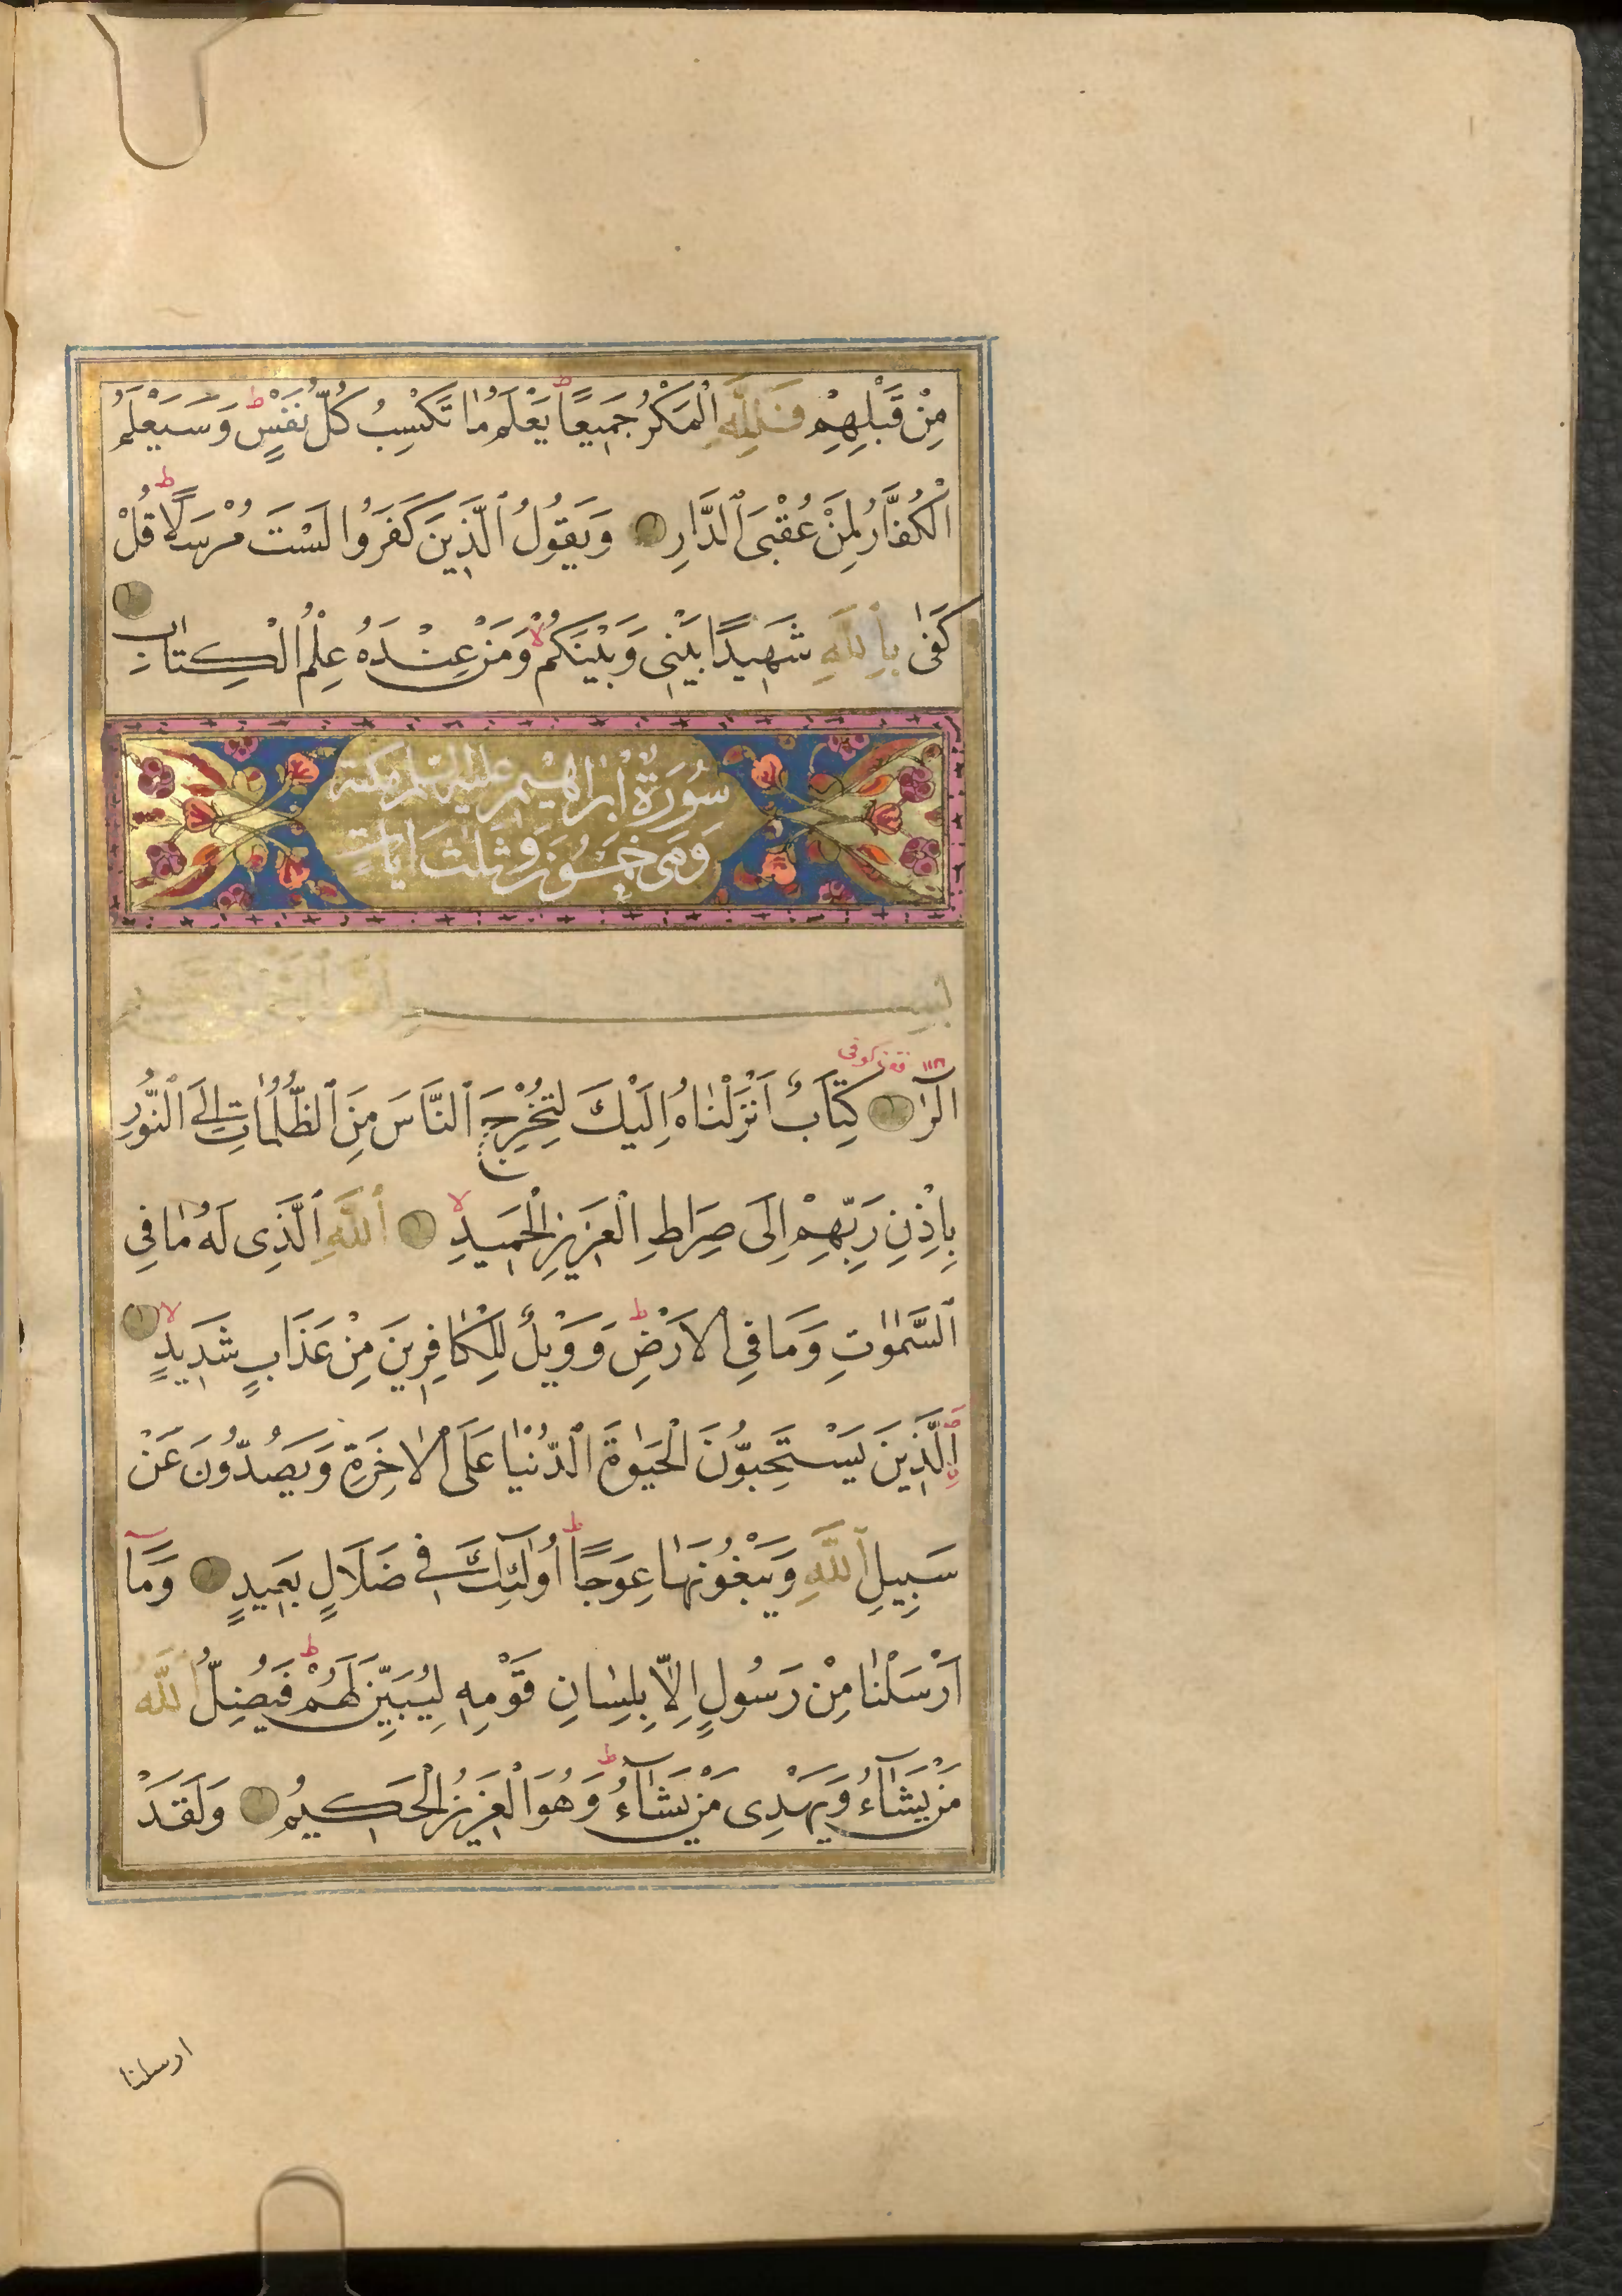 مِنْ قَبْلِهِمْ فَلِلَّهِ الْمَكْرُ جَمِيعًا ط يَعْلَمُ مَا تَكْسِبُ كُلُّ نَفْسٍ ط وَسَيَعْلَمُ
الْكُفَّارُ لِمَنْ عُقْبَى الدَّارِ وَيَقُولُ الَّذِينَ كَفَرُوا لَسْتَ مُرْسَلًا ط قُلْ
كَفٰى بِاللَّهِ شَهِيدًا بَيْنِى وَبَيْنَكُمْ لا وَمَنْ عِنْدَهُ عِلْمُ الْكِتَابِ
سُورَةُ اِبْرٰاهِيمَ عليه السلم مكية
وَهِىَ خَمْسُونَ وَثَلٰثُ اٰيَاتٍ
بسم الله الرحمن الرحيم
الٓرٰ كِتَابٌ اَنْزَلْنٰاهُ اِلَيْكَ لِتُخْرِجَ النَّاسَ مِنَ الظُّلُمٰاتِ اِلَى النُّورِ
بِاِذْنِ رَبِّهِمْ اِلَى صِرَاطِ الْعَزِيزِ الْحَمِيدِ لا اَللَّهِ الَّذِى لَهُ مٰا فِى
السَّمٰوٰتِ وَمَا فِى الْاَرْضِ ط وَوَيْلٌ لِلْكٰافِرِينَ مِنْ عَذَابٍ شَدِيدٍ لا
اَلَّذِينَ يَسْتَحِبُّونَ الْحَيٰوةَ الدُّنْيٰا عَلَى الْاٰخِرَةِ وَيَصُدُّونَ عَنْ
سَبِيلِ اللَّهِ وَيَبْغُونَهٰا عِوَجًا ط اُولٰٓئِكَ فِى ضَلَالٍ بَعِيدٍ وَمَٓا
اَرْسَلْنٰا مِنْ رَسُولٍ اِلَّا بِلِسٰانِ قَوْمِهِ لِيُبَيِّنَ لَهُمْ ط فَيُضِلُّ اللَّهُ
مَنْ يَشَٓاءُ وَيَهْدِى مَنْ يَشَٓاءُ ط وَهُوَ الْعَزِيزُ الْحَكِيمُ وَلَقَدْ
ارسلنا